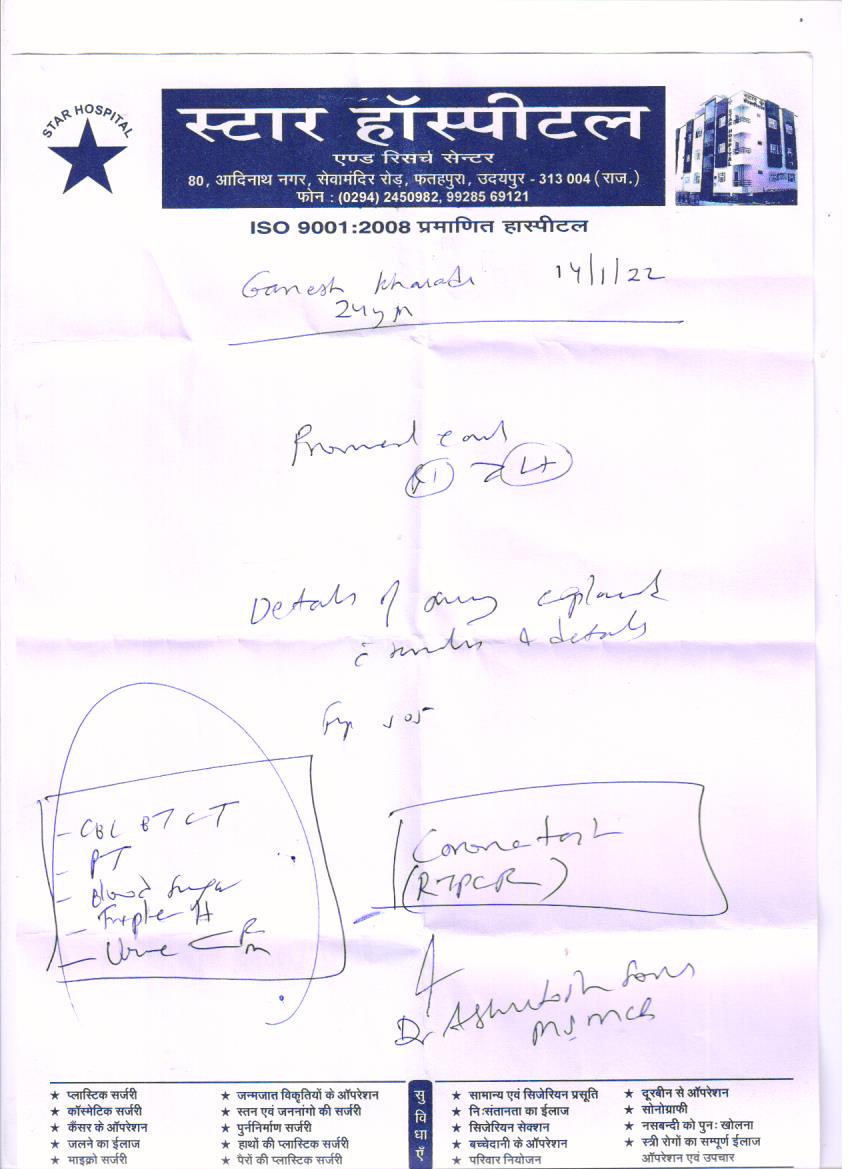 STAR HOSPITAL
स्टार हॉस्पीटल
एण्ड रिसर्च सेन्टर
80, आदिनाथ नगर, सेवामंदिर रोड़, फतहपुरा, उदयपुर - 313 004 (राज.)
फोन : (0294) 2450982, 99285 69121
ISO 9001:2008 प्रमाणित हास्पीटल
Ganesh Kharadi 14/1/22
24y M
Prominent ears
Rt > Lt
Details of surgery explained
& details
- CBC BT CT
- PT
- Blood Sugar
- Triple H
- Urine C R/m
Corona test
(RTPCR)
Dr Ashutosh Soni
MS MCh
सुविधाएँ
★ प्लास्टिक सर्जरी
★ कॉस्मेटिक सर्जरी
★ कैंसर के ऑपरेशन
★ जलने का ईलाज
★ माइक्रो सर्जरी
★ जन्मजात विकृतियों के ऑपरेशन
★ स्तन एवं जननांगो की सर्जरी
★ पुर्ननिर्माण सर्जरी
★ हाथों की प्लास्टिक सर्जरी
★ पैरों की प्लास्टिक सर्जरी
★ सामान्य एवं सिजेरियन प्रसूति
★ निःसंतानता का ईलाज
★ सिजेरियन सेक्शन
★ बच्चेदानी के ऑपरेशन
★ परिवार नियोजन
★ दूरबीन से ऑपरेशन
★ सोनोग्राफी
★ नसबन्दी को पुनः खोलना
★ स्त्री रोगों का सम्पूर्ण ईलाज
ऑपरेशन एवं उपचार